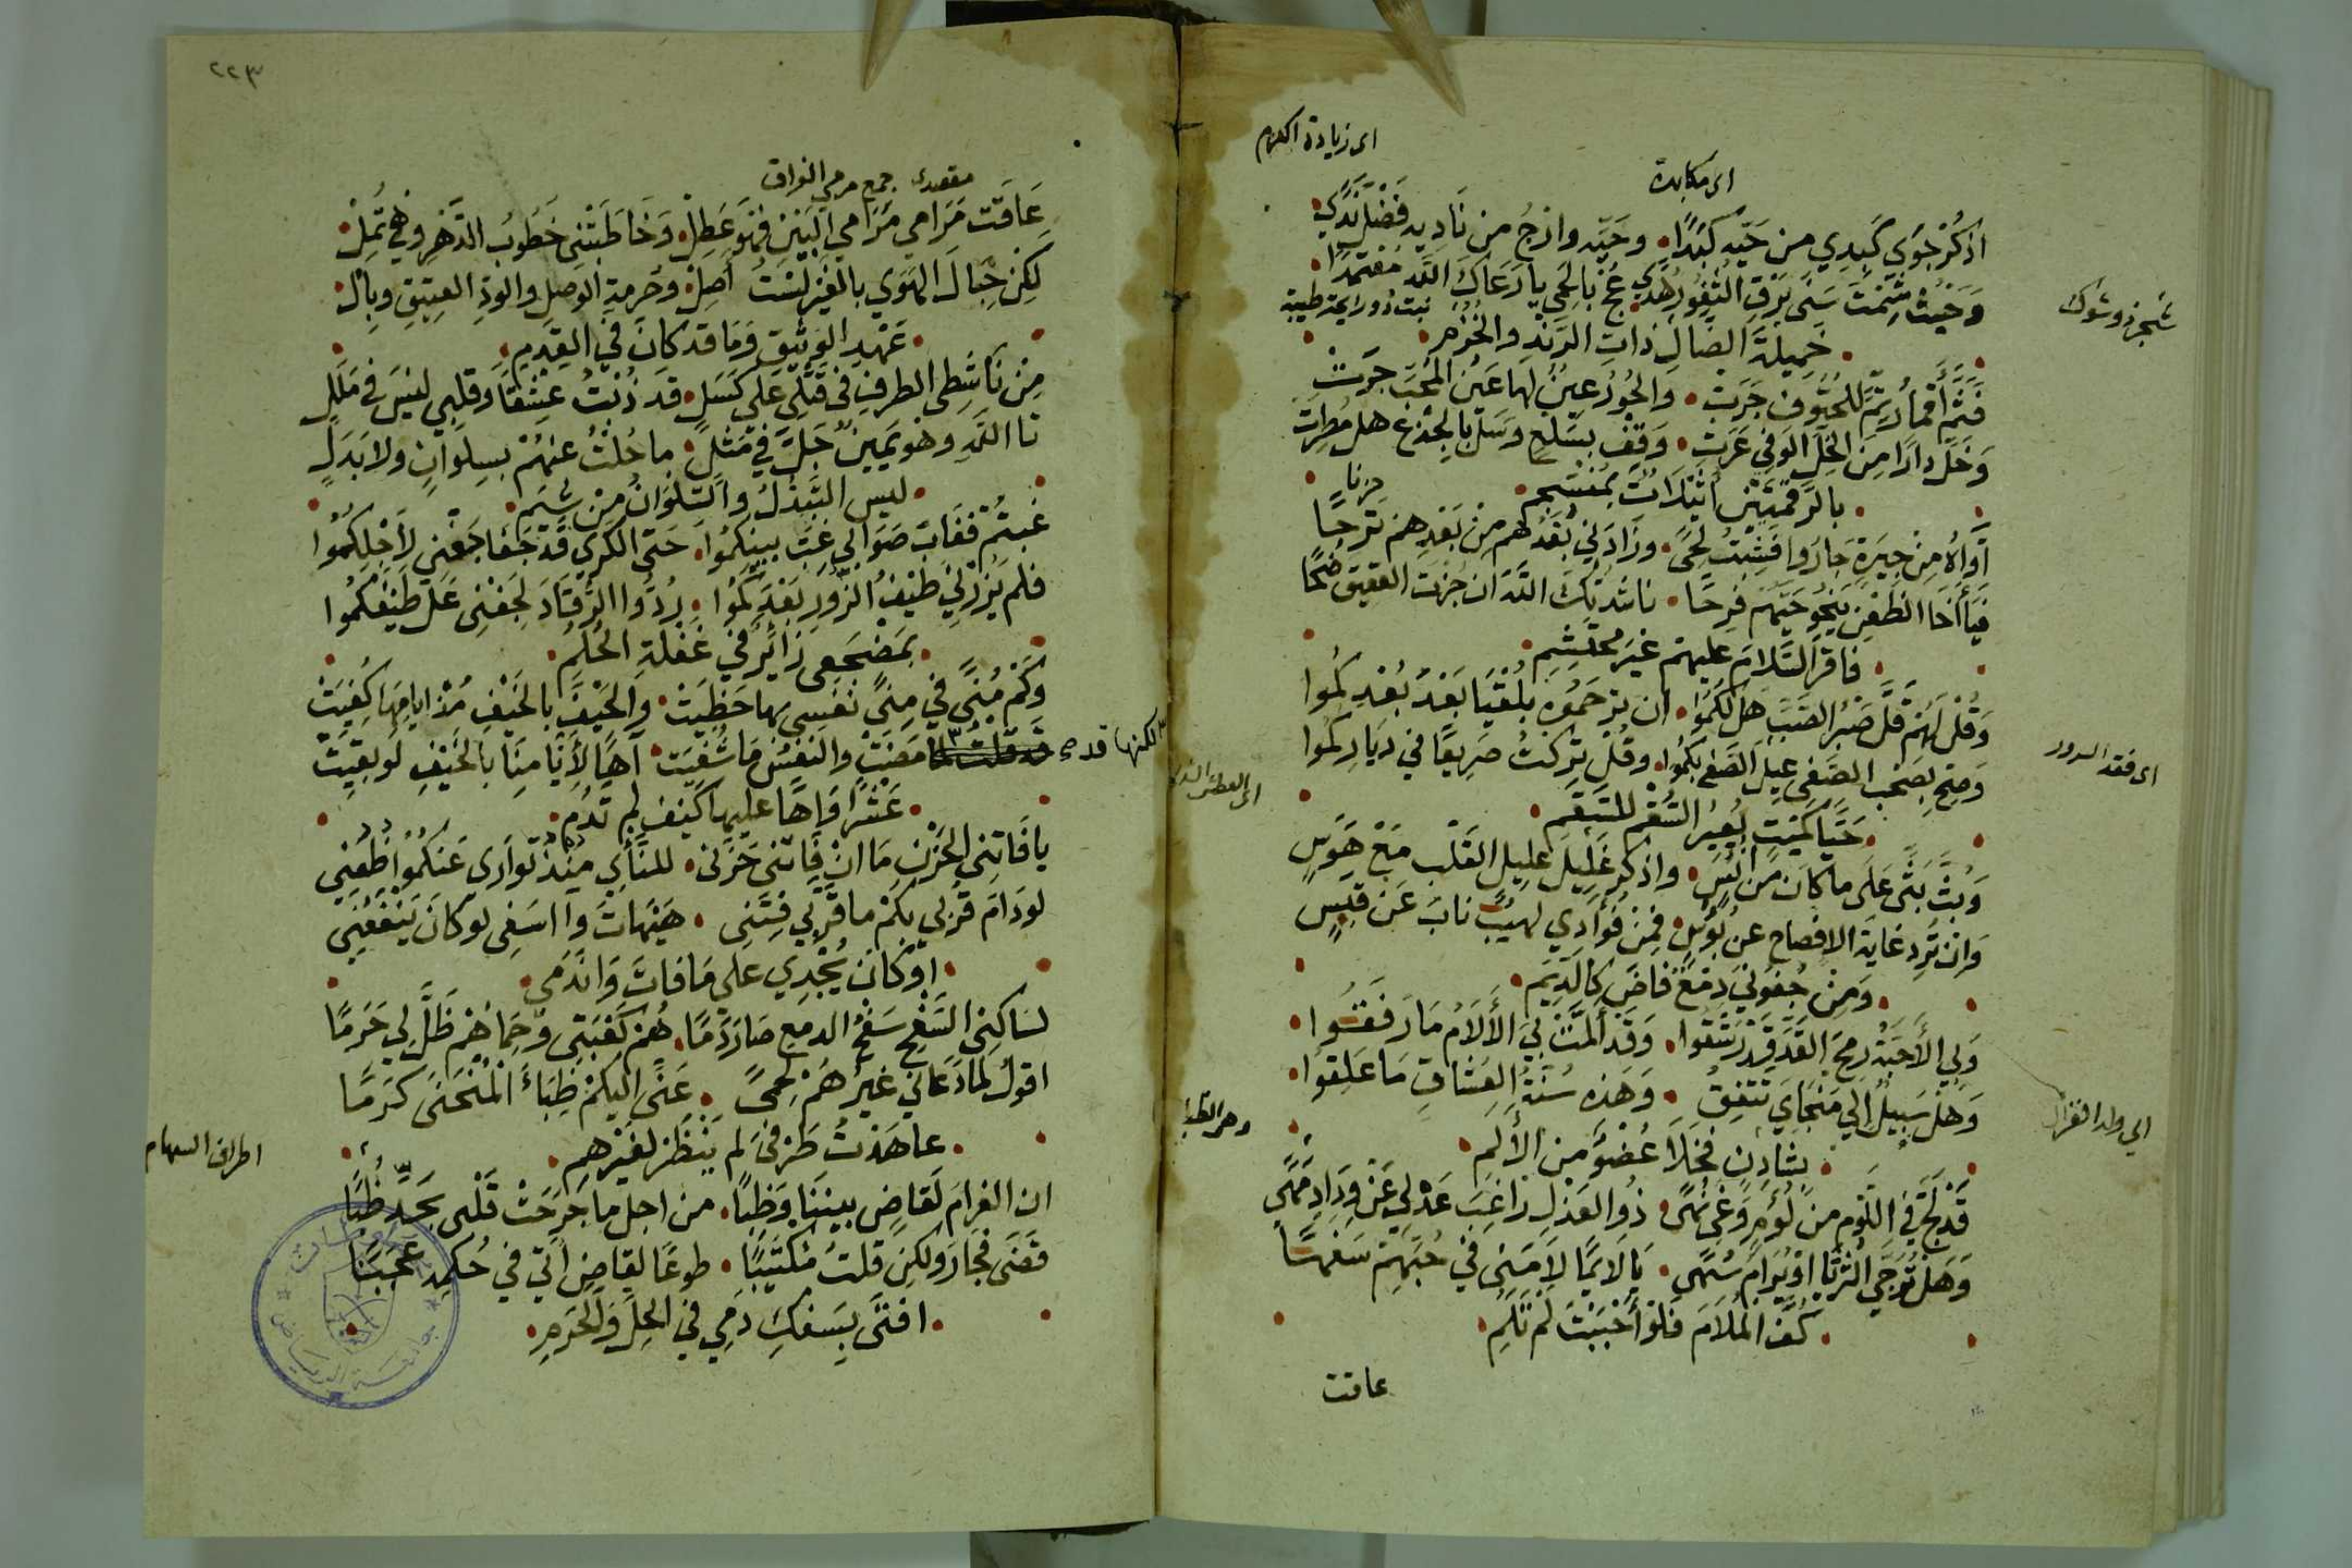 اى زيادة الكرم
اى مكابدة
اذكر جوي كبدي من حيّه كبدا • وحيّه وارج من ناديه فضل ندي •
وحيث شمت سنى برق الثغور هدي • عج بالحمى يا رعاك الله معتمدا •
نبت ذو رايحة طيبة
شجر ذو شوك
• خميلة الضال ذات الرند والخزم •
فثم أقمار تم للحتوف جرت • والحور عين لها عين المحب جرت
وخل دارا من الخل الوفي عرت • وقف بسلع وسل بالجذع هل مطرت
• بالرقمتين أثيلات بمنسجم •
حزنا
آواه من جيرة جاروا فشبت لحى • وزادني بعدهم من بعدهم ترحا
فيا أخا الظعن ينحو حيّهم فرحا • ناشدتك الله ان جزت العقيق ضحا
• فاقر السلام عليهم غير محتشم •
وقل لهم قل صبر الصب هل لكموا • ان ترحموه بلقيا بعد بعدكموا
وصح بصحب الصفى عيل الصفى بكموا • وقل تركت صريعا في دياركموا
اى فقد السرور
• حيا كميت يعير السقم للسقم •
وبث بثى على ما كان من انس • واذكر غليل عليل القلب مع هوس
وان ترد غاية الافصاح عن بؤس • فمن فؤادي لهيب ناب عن قبس
• ومن جفوني دمع فاض كالديم •
ولي الأحبة رمح القد قد رشقوا • وقد ألمت بي الألام ما رفقوا •
وهل سبيل الي منجاي تتفق • وهذه سنة العشاق ما علقوا •
الي ولد الغزال
• بشادن فخلا عضو من الألم •
قد لج في اللوم من لؤم وغى نهى • ذو العذل زاغب عذلي عن وداد مهى
وهل ترجي الثريا او يرام سهى • يا لايما لامني في حبهم سفها
• كف الملام فلو أحببت لم تلم •
عاقت
٢٢٣
مقصدى جمع مرمى الفراق
عاقت مرامي مرامي البين فهو عطل • وخاطبتني خطوب الدهر وهي تمل •
لكن حبال الهوي بالغير لست أصل • وحرمة الوصل والود العتيق وبال •
• عهد الوثيق وما قد كان في القدم •
من ناشطى الطرف فى قتلي على كسل • قد ذبت عشقا وقلبي ليس في ملل
تا الله وهو يمين جل في مثل • ما حلت عنهم بسلوان ولا بدل
• ليس التبدل والسلوان من شيم •
غبتم فغاب صوابي غب بينكموا • حتى الكري قد جفا جفنى لأجلكموا
فلم يزرني طيف الزور بعدكموا • ردوا الرقاد لجفنى عل طيفكموا
• بمضجعى زائر في غفلة الحلم •
وكم منى في منى نفسي بها حظيت • والحيف بالخيف مذ ايامها كفيت
لكنها قد
مضت والنفس ما شفيت • آها لأيامنا بالخيف لو بقيت
• عشرا فواها عليها كيف لم تدم •
يا فاتني الحزن ما ان فاتني حزنى • للنأي منذ توارى عنكموا ظعنى
لو دام قربي بكم ما قر بي فتنى • هيهات وا اسفى لو كان ينفعنى
• او كان يجدي علي ما فات واندمي •
لساكني السفح سفح الدمع صار دما • هم كعبتى وحماهم ظل لي حرما
اقول لما دعاني غيرهم لحمى • عنى اليكم ظباء المنحنى كرما
وهو الظبا
• عاهدت طرفى لم ينظر لغيرهم •
اطراف السهام
ان الغرام لقاض بيننا وظبا • من اجل ما جرحت قلبى بحد ظبا
قضى فجار ولكن قلت مكتئبا • طوعا لقاض اتى في حكمه عجبا
• افتى بسفك دمي في الحل والحرم •
جامعة الرياض